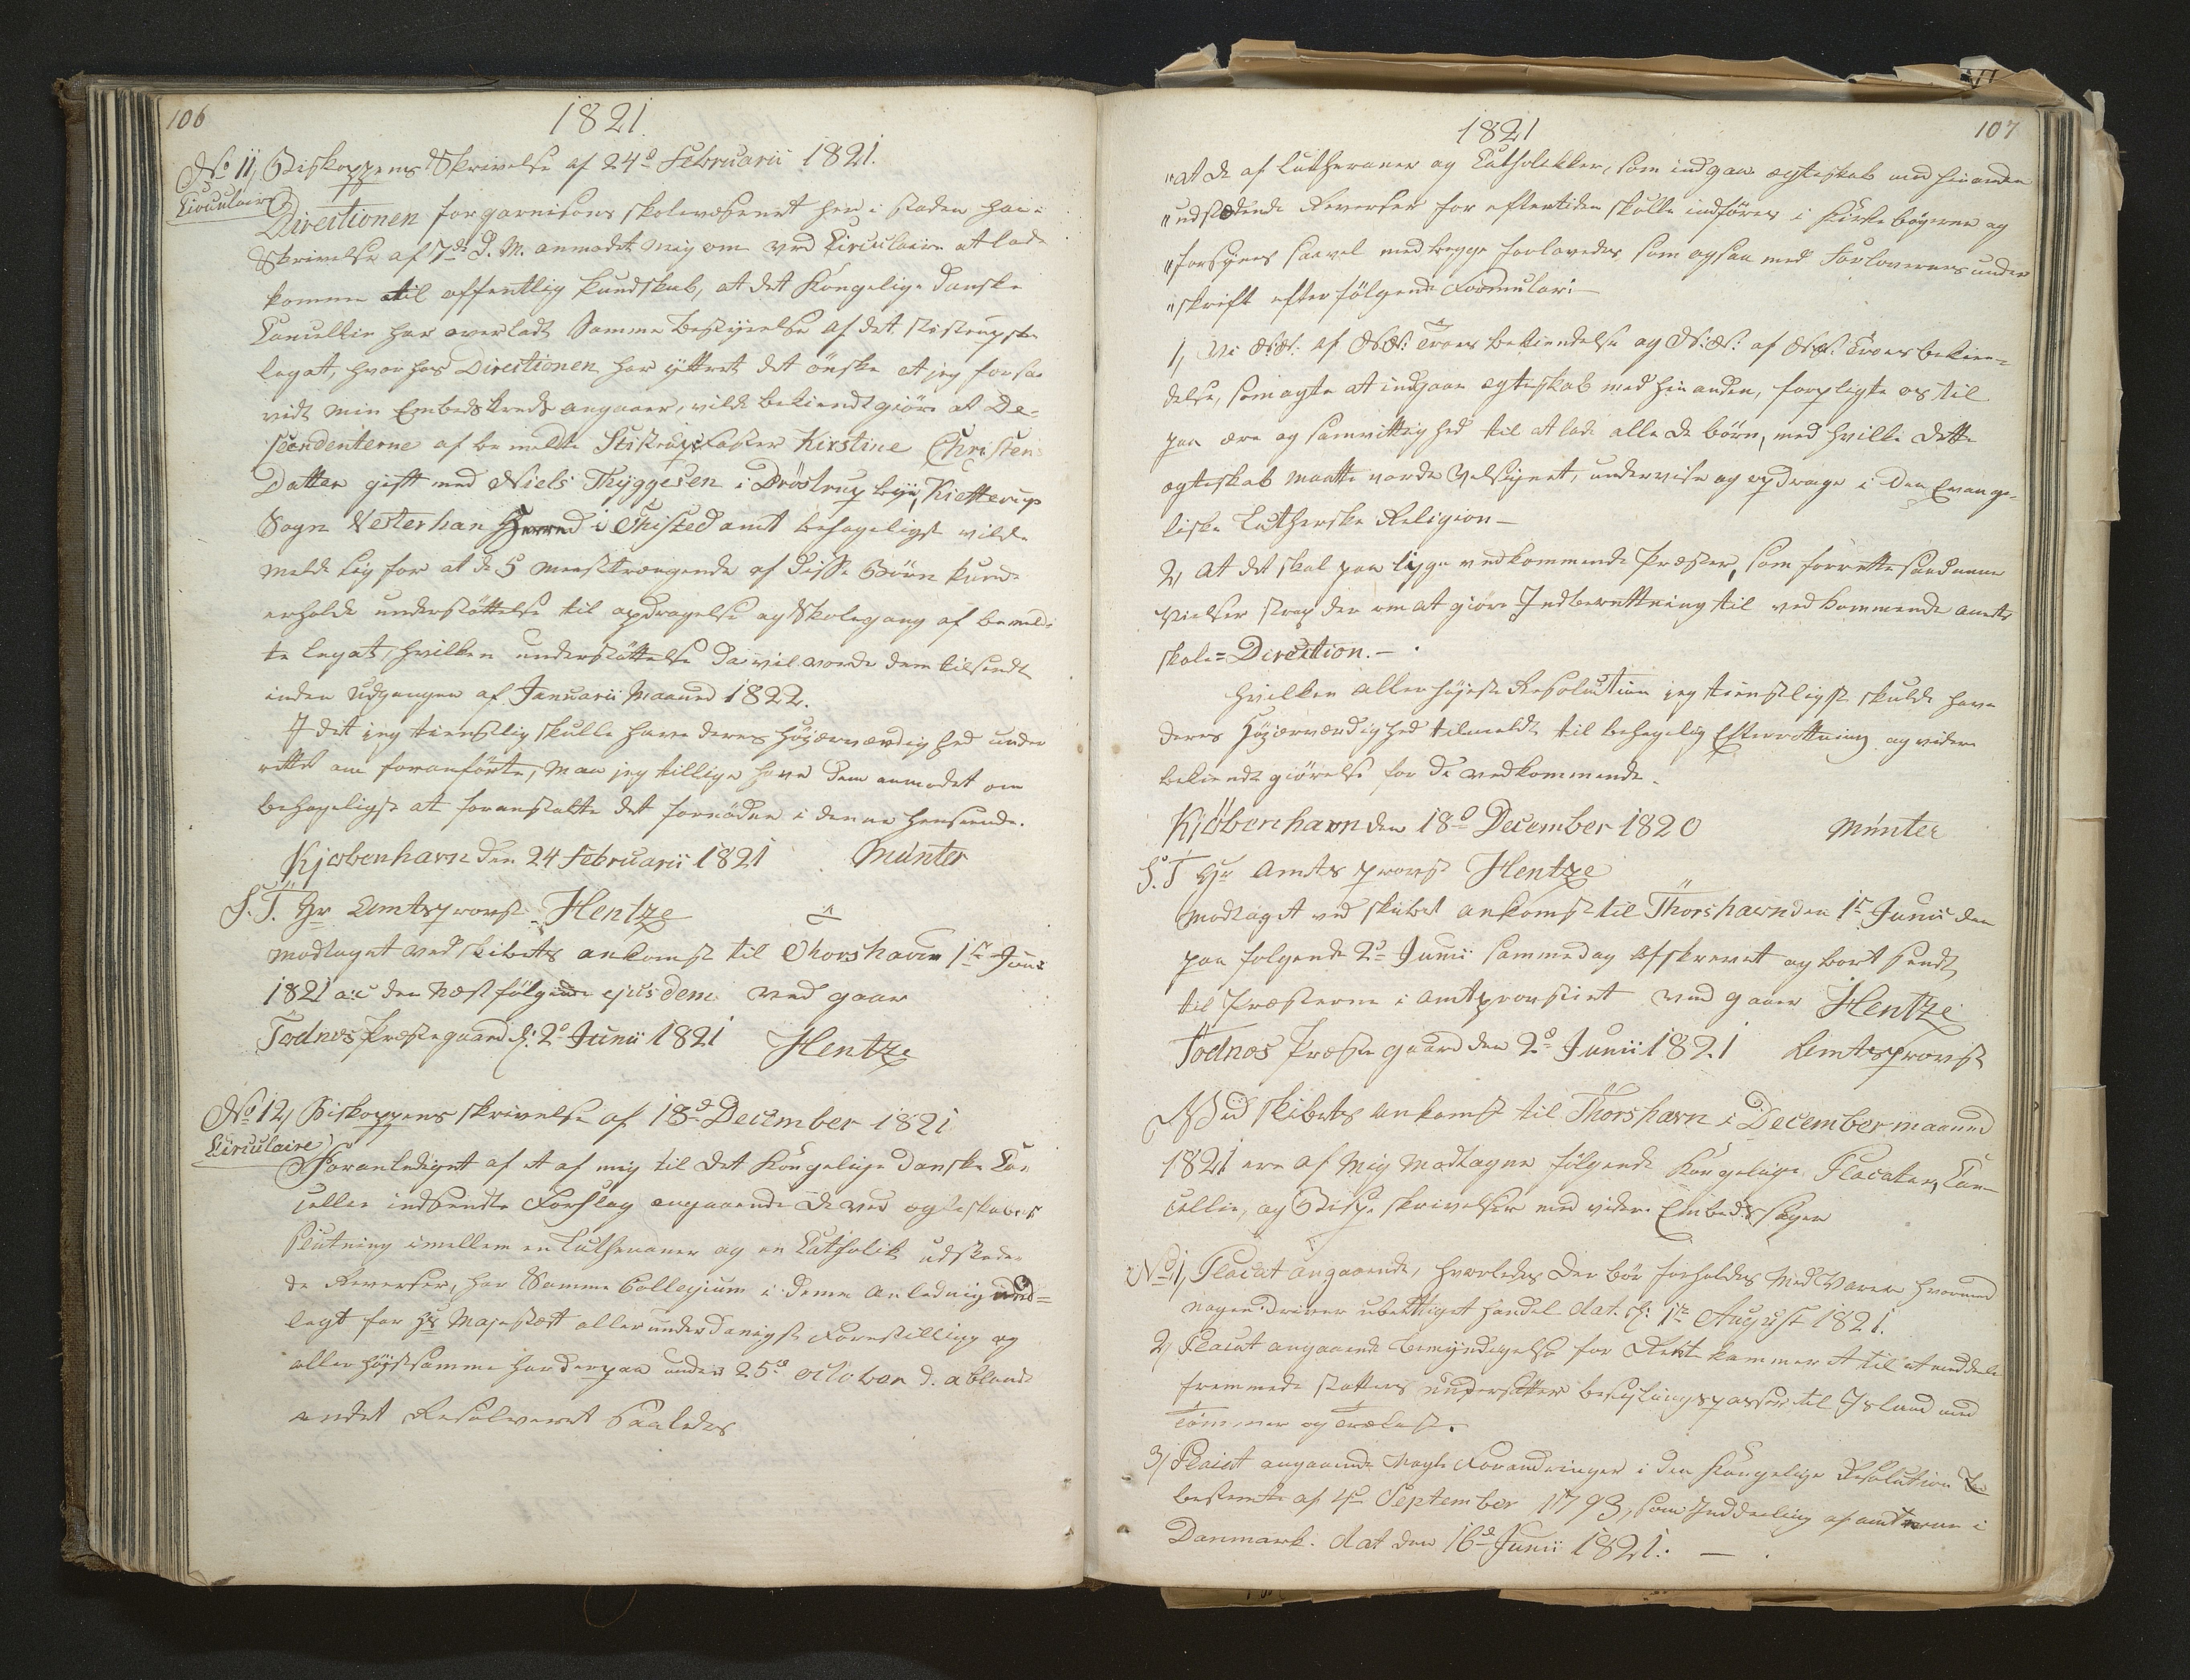 106
1821.
No 11, Biskoppens Skrivelse af 24de Februarii 1821.
Circulaire
Directionen for garnisons skolevæsenet her i Staden har i
Skrivelse af 7de d. M. anmodet mig om ved Circulaire at lade
komme til offentlig kundskab, at det Kongelige danske
Cancellie har overladt Samme bestyrelse af det Stistrupske
legat, hvorhos Directionen har yttret det önske at jeg forsaa
vidt min Embedskreds angaaer, vilde bekiendtgiöre at De-
scendenterne af bemeldte Stistrups Söster Kirstine Christens
Datter gift med Niels Thyggesen i Dröstrup bye, Kietterup
Sogn Vesterhan Herred i Thisted amt behageligst vilde
melde sig for at de 5 meest trængende af disse Börn kunde
erholde understöttelse til opdragelse og Skolegang af bemeld-
te legat, hvilken understöttelse da vil vorde dem tilsendt
inden Udgangen af Januarii Maaned 1822.
I det jeg tienstlig skulle have deres höiærværdighed under
rettet om foranförte, maa jeg tillige have dem anmodet om
behageligst at foranstalte det fornödne i denne henseende.
Kjøbenhavn den 24 Februarii 1821 Münter
S. T. Hr Amtsprovst Hentze
modtaget ved skibets ankomst til Thorshavn 1ste Junii
1821 a:c den næst fölgende ejusdem ved gaar
Todnes Præstegaard d: 2de Junii 1821 Hentze
No 12, Biskoppens skrivelse af 18de December 1821
Circulaire
Foranlediget af et af mig til det Kongelige danske Can
cellie indsendte Forslag angaaende de ved ægteskabers
slutning imellem en Lutheraner og en Catholik udstæden-
de Reverser, har Samme Collegium i denne Anledning ned-
lagt for Hs Majestæt allerunderdanigst Forestilling og
allerhöjstsamme har derpaa under 25de october d. a blandt
andet Resolveret saaledes
107
1821
"at de af Lutheraner og Catholikker, som indgaae ægteskab med hinanden
"udstædende Reverser for eftertiden skulle indföres i Kirkebögerne og
"forsynes saavel med begge forlovedes som ogsaa med Forlovernes under
"skrift efter fölgende Formular:
1, Vi N:N: af N:N: Troes bekiendelse og N:N: af N:N: Troes bekien-
delse, som agte at indgaae ægteskab med hinanden, forpligte os til
paa ære og samvittighed til at lade alle de börn, med hvilke dette
ægteskab maatte vorde velsignet, undervise og opdrage i den Evange-
liske Lutherske Religion
2, at det skal paa ligge vedkommende Præster, som forrette saadanne
Vielser strax der om at giöre Indberettning til vedkommende amts
skole=Direction.
Hvilken allerhöjeste Resolution jeg tienstligst skulde have
deres Höjærværdighed tilmeldt til behagelig Efterrettning og videre
bekiendtgiörelse for de vedkommende.
Kjöbenhavn den 18de December 1820 Münter
S. T Hr Amts provst Hentze
modtaget ved skibets ankomst til Thorshavn den 1ste Junii den
paa folgende 2de Junii samme dag afskrevet og bort sendt
til Præsterne i amtprovstiet ved gaaer Hentze
Todnæs Præste gaard den 2de Junii 1821 Amtsprovst
Med skibets ankomst til Thorshavn i December maaned
1821 ere af mig modtagne fölgende Kongelige Placater, Can-
cellie, og Bispe skrivelser med videre Embedssager
No 1, Placat angaaende, hvorledes der bör forholdes med Varer hvormed
nogen driver uberettiget Handel dat. d: 1ste August 1821.
2, Placat angaaende bemyndigelse for Rente kammeret til at meddele
fremmede statters undersatter besejlingspasser til Island med
Tömmer og Trælast.
3, Placat angaaende nogle Forandringer i den Kongelige Resolution
bestemte af 4de September 1793, som Inddeeling af amterne i
Danmark. dat den 16de Junii 1821.